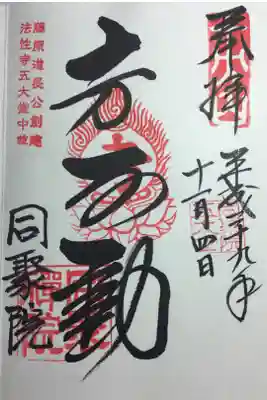 奉拝
平成二十九年
十一月四日
不動
同聚院
藤原道長公創建
法性寺五大堂中